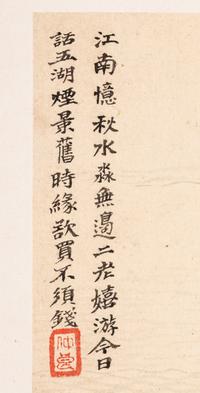 江南憶秋水淼無邊二老嬉游今日
話五湖煙景舊時緣欲買不須錢